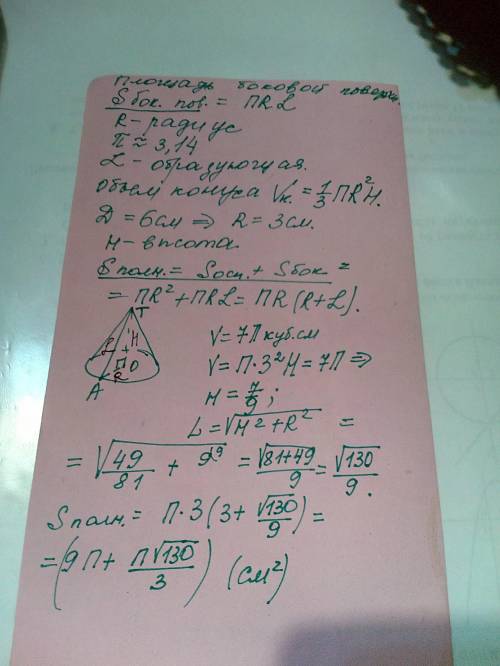 Площадь боковой поверх.
S бок. пов. = ПR L
R - радиус
П ≈ 3,14
L - образующая.
Объем конуса Vк. = 1/3 ПR²H.
D = 6см ⇒ R = 3см.
H - впсота
S полн. = Sосн. + Sбок =
= ПR² + ПRL = ПR(R+L).
T
L H
П O
R
A
V = 7П куб.см
V = П·3²H = 7П ⇒
H = 7/9 ;
L = √H² + R² =
= √49/81 + 9 = √81+49/9 = √130/9.
S полн. = П·3(3 + √130/9) =
= (9П + П√130/3) (см²)